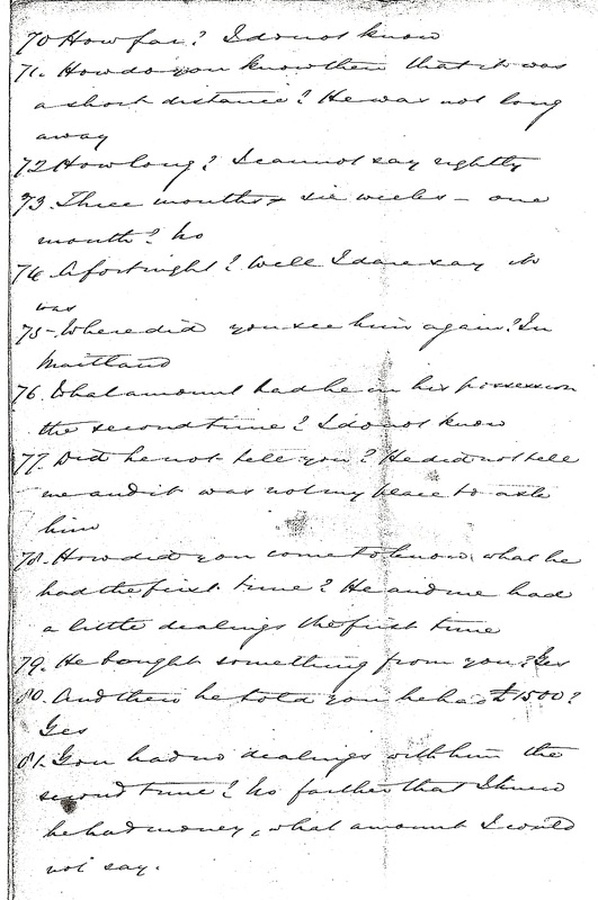 70 How far? I do not know
71. How do you know then that it was
a short distance? He was not long
away
72 How long? I cannot say rightly
73. Three months & six weeks - one
month? No
74. A fortnight? Well I dare say it
was
75-Where did you see him again? In
Maitland
76. What amount had he in his possession
the second time? I do not know
77. Did he not tell you? He did not tell
me and it was not my place to ask
him
78. How did you come to know what he
had the first time? He and me had
a little dealings the first time
79. He bought something from you? Yes
80. And then he told you he had £1500?
Yes
81. You had no dealings with him the
second time? No farther that I knew
he had money, what amount I could
not say.